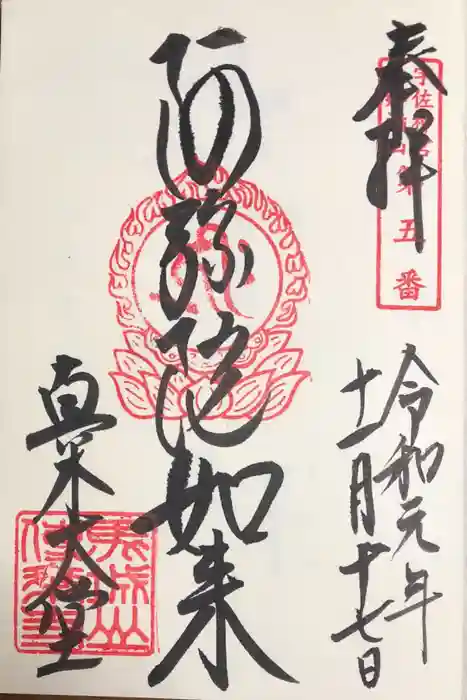 奉拝
宇佐神宮
第五番
令和元年
十一月十七日
阿弥陀如来
真木大堂